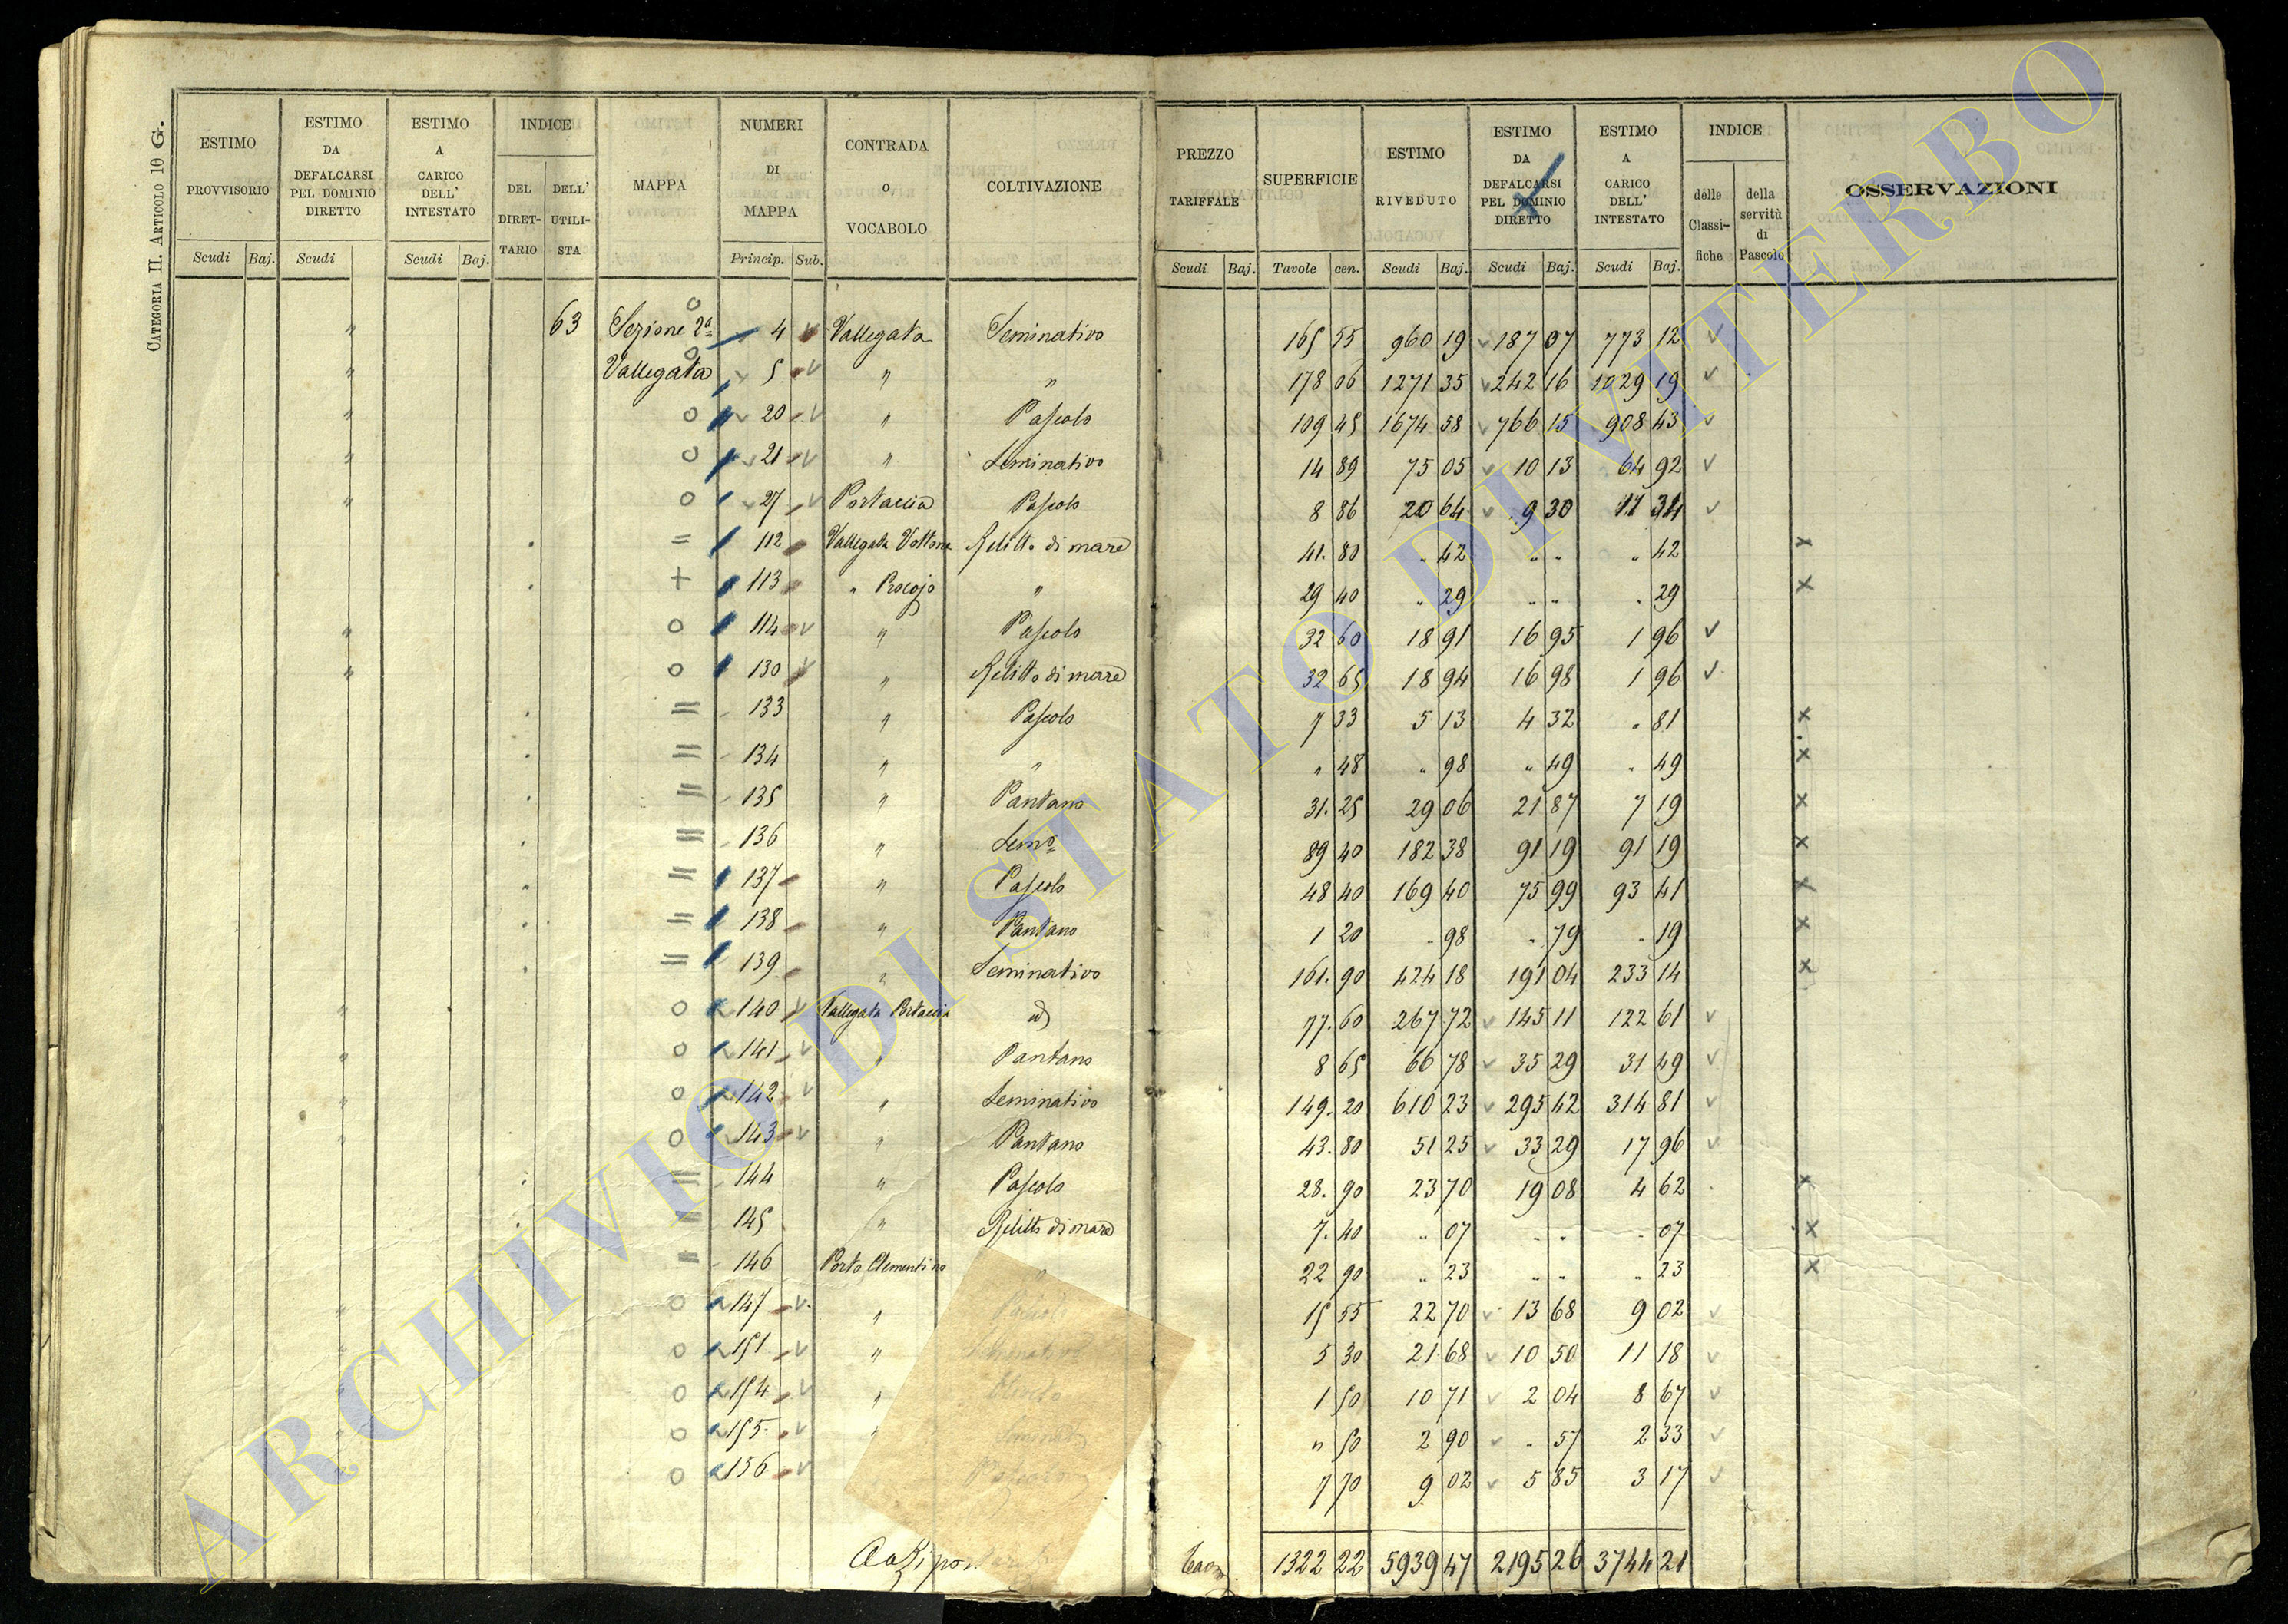 CATEGORIA II. ARTICOLO 10 G.
ESTIMO PROVVISORIO Scudi Baj.
ESTIMO DA DEFALCARSI PEL DOMINIO DIRETTO Scudi
ESTIMO A CARICO DELL' INTESTATO Scudi Baj.
INDICE DEL DIRET- TARIO DELL' UTILI- STA
MAPPA
NUMERI DI MAPPA Princip. Sub.
CONTRADA O VOCABOLO
COLTIVAZIONE
PREZZO TARIFFALE Scudi Baj.
SUPERFICIE Tavole cen.
ESTIMO RIVEDUTO Scudi Baj.
ESTIMO DA DEFALCARSI PEL DOMINIO DIRETTO Scudi Baj.
ESTIMO A CARICO DELL' INTESTATO Scudi Baj.
INDICE delle Classi- fiche della servitù di Pascolo
OSSERVAZIONI
" 63 Sezione 2a 4 Vallegata Seminativo 165 55 960 19 187 07 773 12
" Vallegata 5 " " 178 06 1271 35 242 16 1029 19
" 20 " Pascolo 109 45 1674 58 766 15 908 43
" 21 " Seminativo 14 89 75 05 10 13 64 92
" 27 Portaccia Pascolo 8 86 20 64 9 30 11 34
= 112 Vallegata Relitto di mare 41. 80 " 42 " " " 42 x
+ 113 " " 29 40 " 29 " " " 29 x
" 114 " Pascolo 32 60 18 91 16 95 1 96
" 130 " Relitto di mare 32 65 18 94 16 98 1 96
133 " Pascolo 7 33 5 13 4 32 " 81 x
134 " " " 48 " 98 " 49 " 49 x
135 " Pantano 31. 25 29 06 21 87 7 19 x
136 " Semo 89 40 182 38 91 19 91 19 x
137 " Pascolo 48 40 169 40 75 99 93 41 x
138 " Pantano 1 20 " 98 " 79 " 19 x
139 " Seminativo 161. 90 424 18 191 04 233 14 x
" 140 Vallegata Portaccia id 77. 60 267 72 145 11 122 61
" 141 " Pantano 8 65 66 78 35 29 31 49
" 142 " Seminativo 149. 20 610 23 295 42 314 81
" 143 " Pantano 43. 80 51 25 33 29 17 96
144 " Pascolo 28. 90 23 70 19 08 4 62 x
145 " Relitto di mare 7. 40 " 07 " " " 07 x
146 Porto Clementino 22 90 " 23 " " " 23 x
" 147 " Pascolo 15 55 22 70 13 68 9 02
" 151 " Seminativo 5 30 21 68 10 50 11 18
" 154 " 1 50 10 71 2 04 8 67
" 155 " " 50 2 90 " 57 2 33
" 156 7 70 9 02 5 85 3 17
1322 22 5939 47 2195 26 3744 21
ARCHIVIO DI STATO DI VITERBO